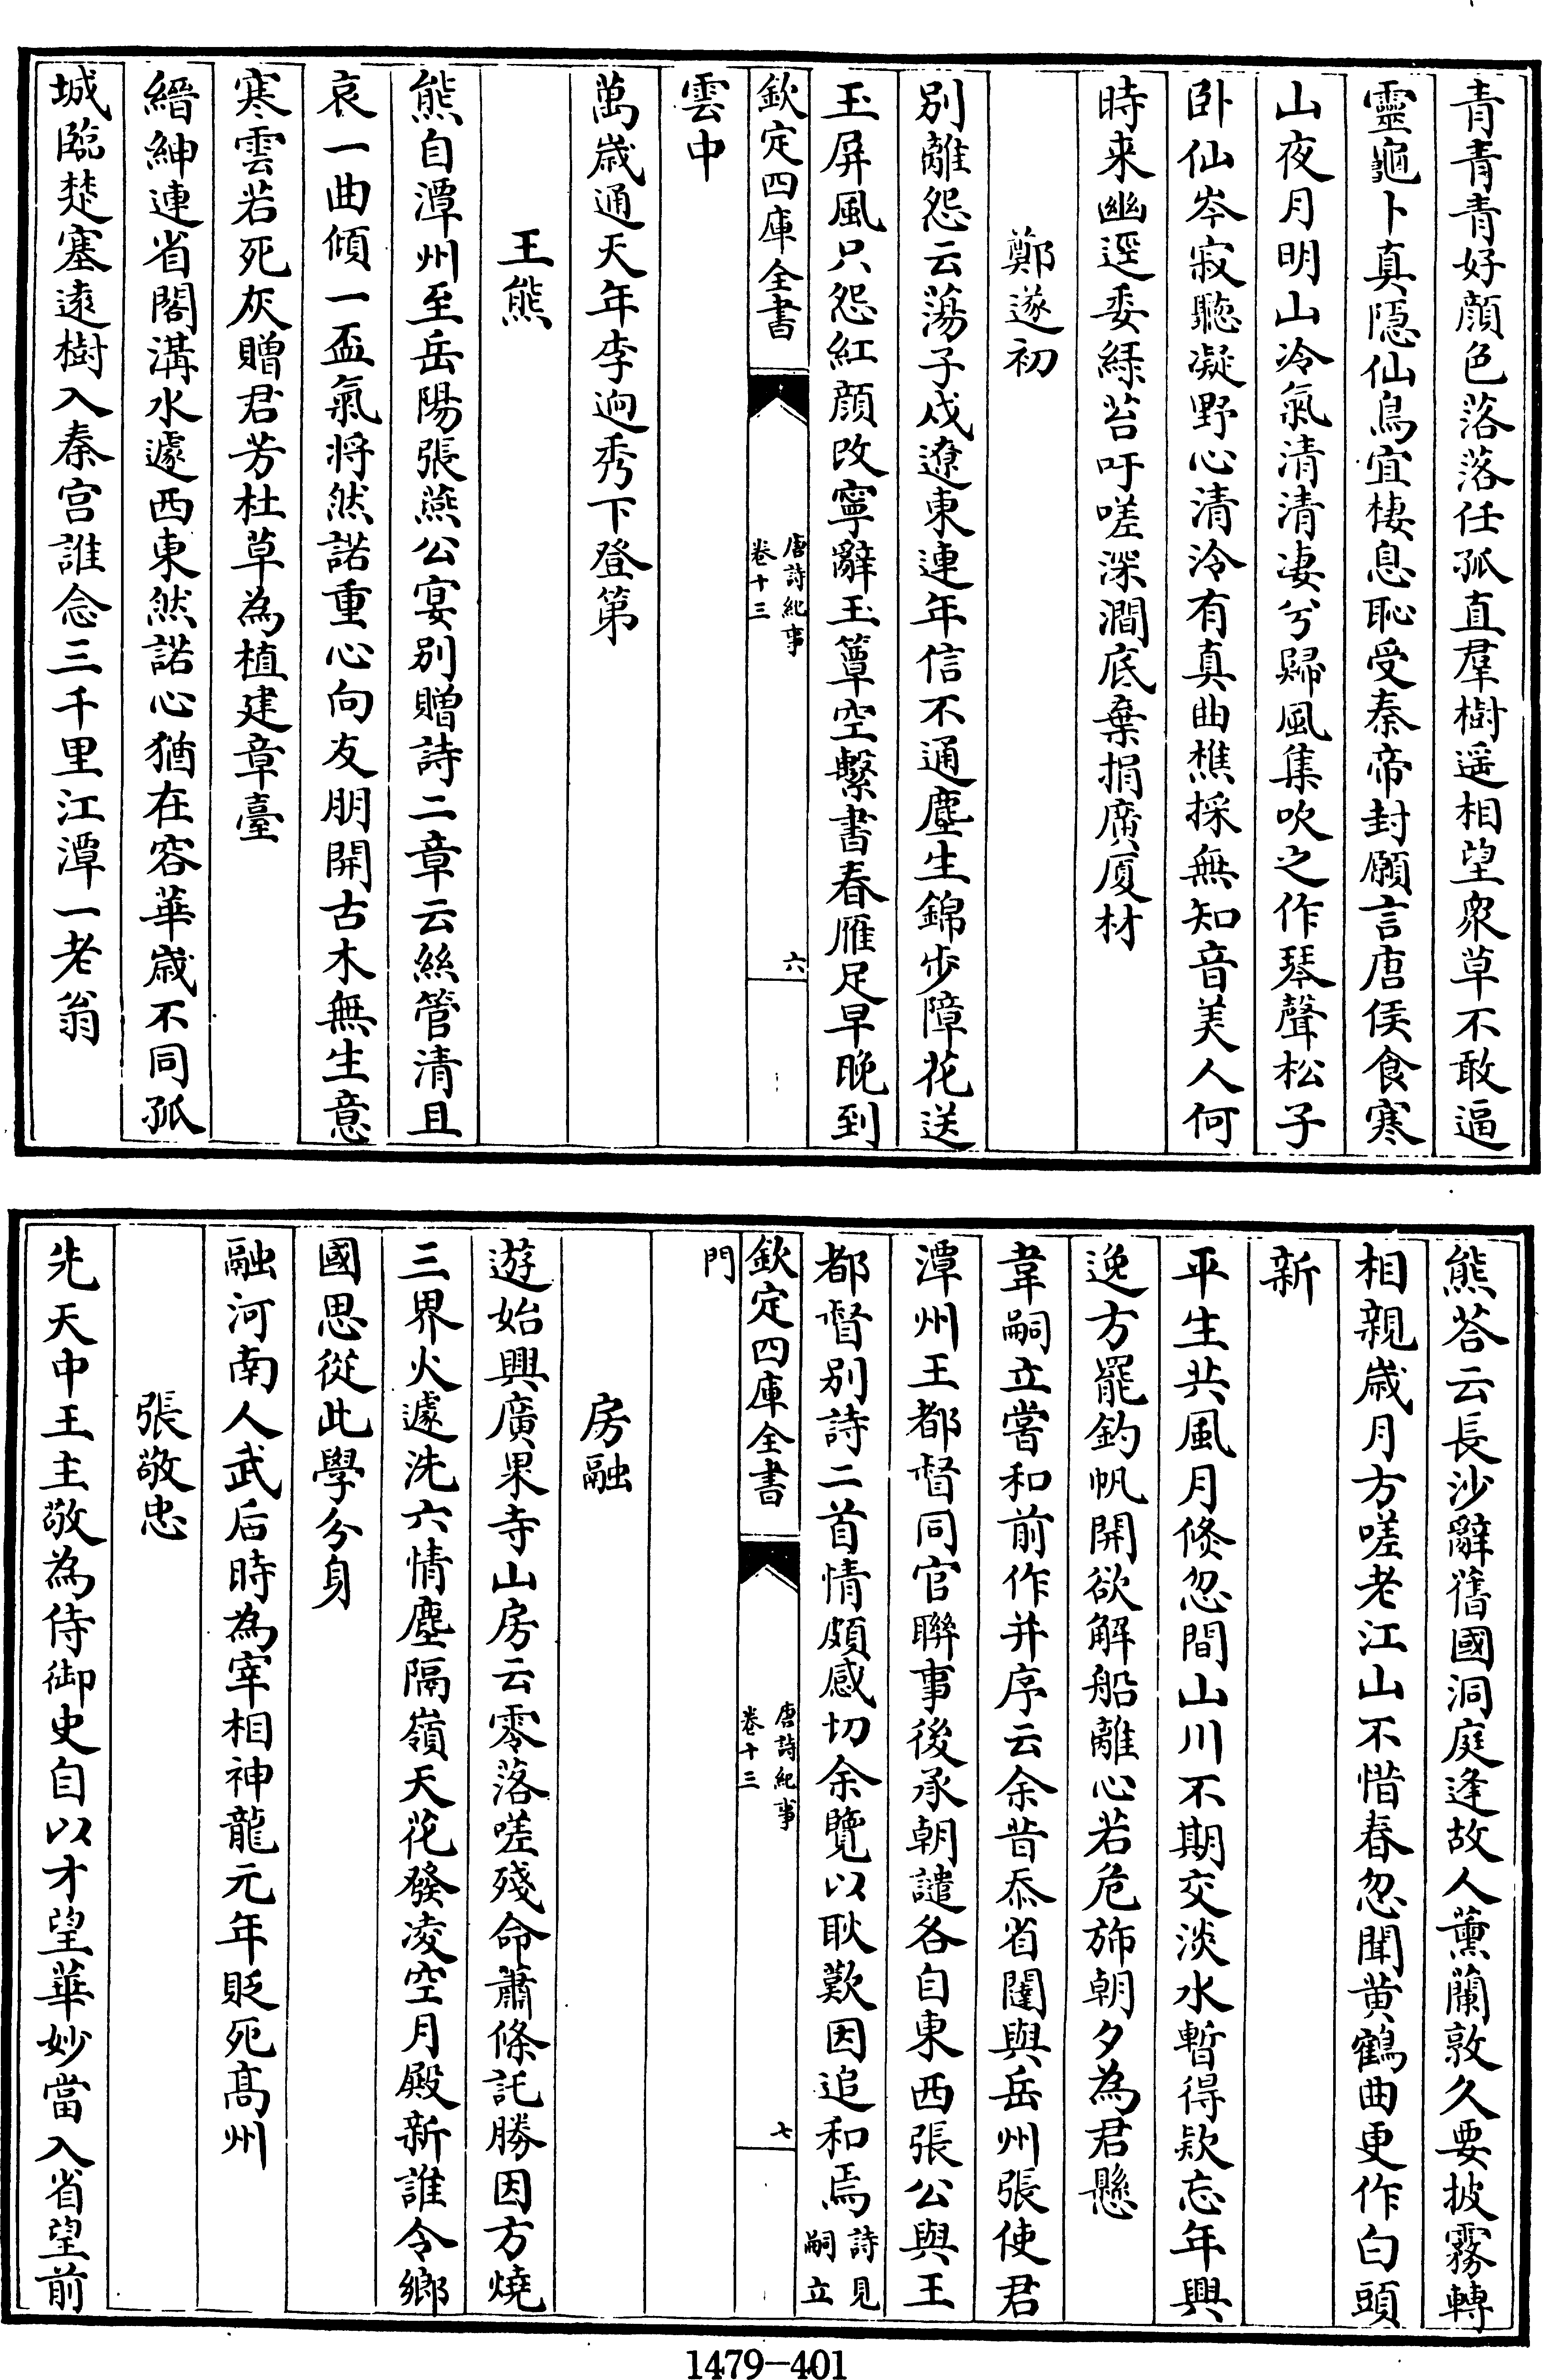 青青青好顔色落落任孤直羣樹遥相望衆草不敢逼
靈龜卜真隠仙鳥宜棲息恥受秦帝封願言唐侯食寒
山夜月明山冷氣清清淒兮歸風集吹之作琴聲松子
卧仙岑寂聽凝野心清泠有真曲樵採無知音美人何
時来幽逕委緑苔吁嗟深澗底棄捐廣厦材
鄭遂初
别離怨云蕩子戍遼東連年信不通塵生錦步障花送
玉屏風只怨紅顔改寧辭玉簟空繫書春雁足早晚到
欽定四庫全書
唐詩紀事
卷十三
六
雲中
萬歲通天年李逈秀下登第
王熊
熊自潭州至岳陽張燕公宴别贈詩二章云絲管清且
哀一曲傾一盃氣将然諾重心向友朋開古木無生意
寒雲若死灰贈君芳杜草為植建章臺
縉紳連省閣溝水遽西東然諾心猶在容華歲不同孤
城臨楚塞遠樹入秦宫誰念三千里江潭一老翁
熊荅云長沙辭舊國洞庭逢故人薰蘭敦久要披霧轉
相親歲月方嗟老江山不惜春忽聞黄鶴曲更作白頭
新
平生共風月倏忽間山川不期交淡水暫得欵忘年興
逸方罷釣帆開欲解船離心若危斾朝夕為君懸
韋嗣立嘗和前作并序云余昔忝省闥與岳州張使君
潭州王都督同官聯事後承朝譴各自東西張公與王
都督别詩二首情頗感切余覽以耿歎因追和焉詩見
嗣立
欽定四庫全書
唐詩紀事
卷十三
七
門
房融
遊始興廣果寺山房云零落嗟殘命蕭條託勝因方燒
三界火遽洗六情塵隔嶺天花發凌空月殿新誰令鄉
國思從此學分身
融河南人武后時為宰相神龍元年貶死髙州
張敬忠
先天中王主敬為侍御史自以才望華妙當入省望前
1479-401